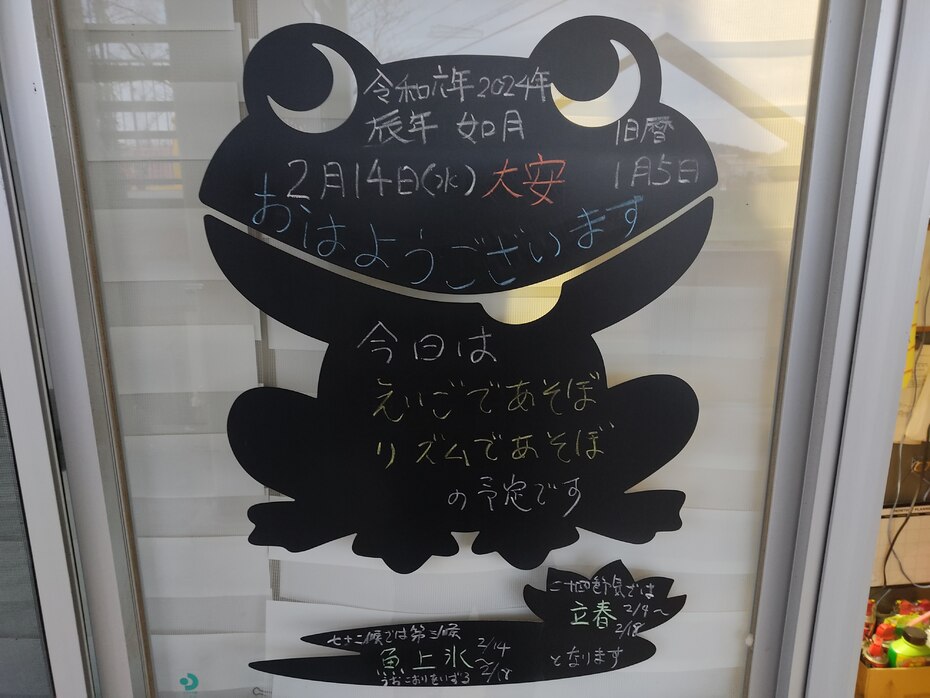 令和六年 2024年
辰年 如月
旧暦
1月5日
2月14日(水) 大安
おはようございます
今日は
えいごであそぼ
リズムであそぼ
の予定です
二十四節気では
立春 2/4〜
2/18
となります
七十二候では第三候
魚上氷 2/14
うおこおりをいずる 2/18